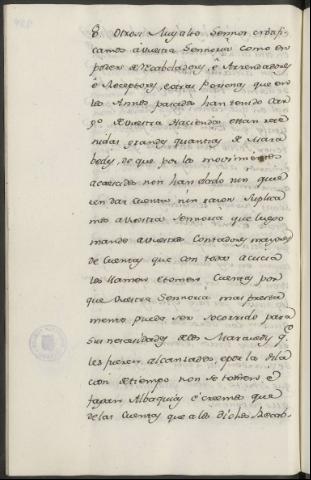 8. Otrosi Muy alto Sennor certifi-
camos a Vuestra Sennoria como en
poder de Recabdadores, é Arrendadores
é Receptores, é otras Personas que en
los Annos pasados han tenido car
go de Vuestra Hacienda estan rete
nidas grandes quantias de Mara
bedis, de que por los movimientos
acaecidos non han dado nin quie
ren dar Cuenta nin razon Suplica
mos a Vuestra Sennoria que luego
mande a Vuestros Contadores mayores
de Cuentas que con toda acucia
los llamen é tomen Cuentas por
que Vuestra Sennoria mas presta
mente pueda ser socorrido para
sus necesidades de los Maravedis q.e
les fueren alcanzados, é por la dila
cion de tiempo non se tolleren é
fagan Albaquias é creemos que
de las Cuentas que a los dichos Recab-